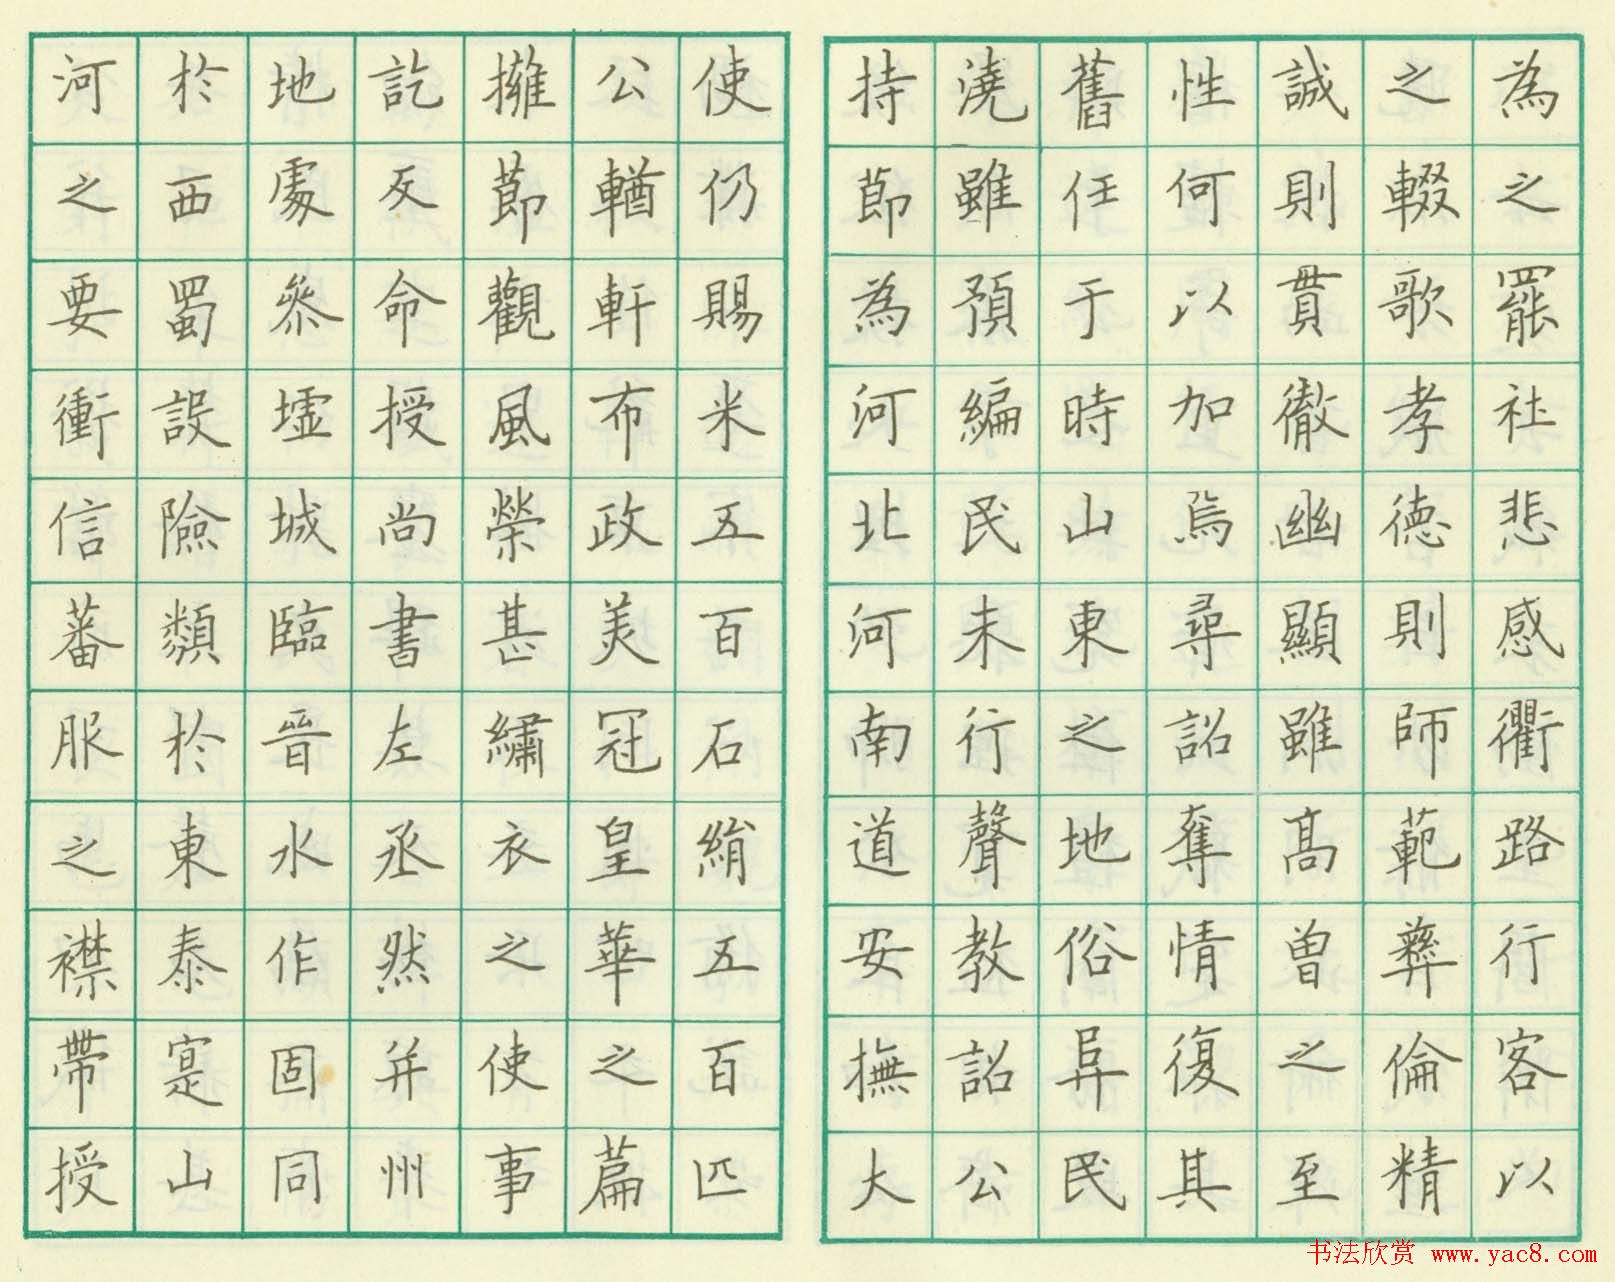 為之罷社悲感衢路行客以
之輟歌孝德則師範彝倫精
誠則貫徹幽顯雖高曾之至
性何以加焉尋詔奪情復其
舊任于時山東之地俗異民
澆雖預編民未行聲教詔公
持節為河北河南道安撫大
使仍賜米五百石絹五百匹
公輶軒布政美冠皇華之篇
擁節觀風榮甚繡衣之使事
訖反命授尚書左丞然并州
地處參墟城臨晉水作固同
於西蜀設險類於東泰寔山
河之要衝信蕃服之襟帶授
书法欣赏 www.yac8.com